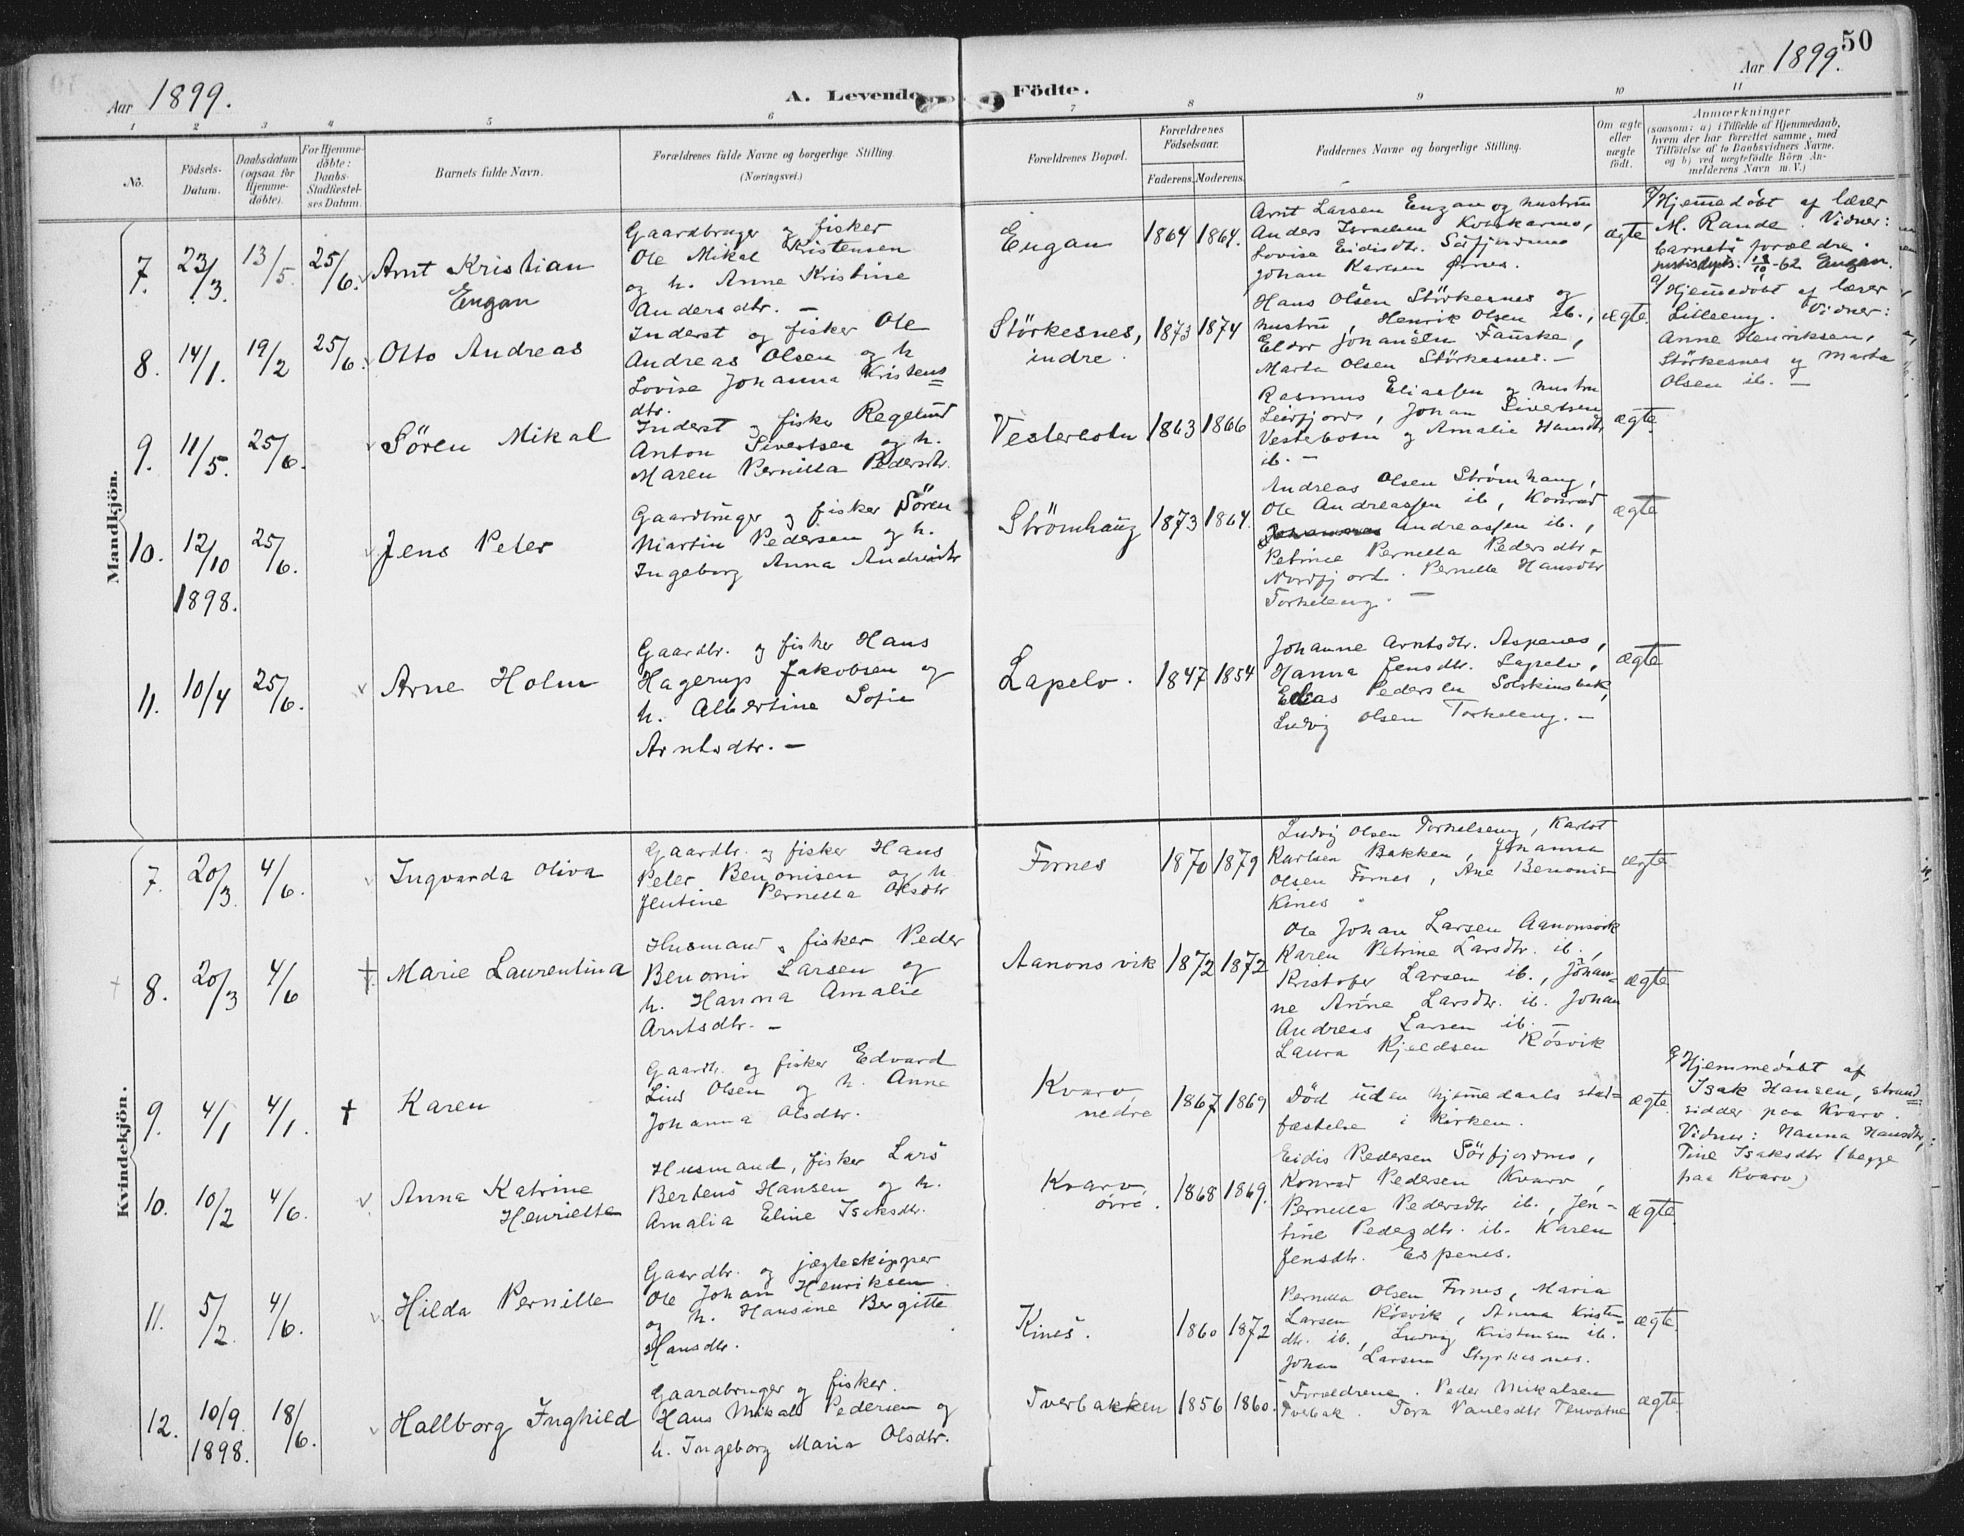 50
Aar 1899.
A. Levende Födte.
Aar 1899.
1 2 3 4 5 6 7 8 9 10 11
No.
Födsels-Datum.
Daabsdatum (ogsaa for Hjemme-döbte).
For Hjemme-döbte: Daabs-Stadfæstel-ses Datum.
Barnets fulde Navn.
Forældrenes fulde Navne og borgerlige Stilling.
(Næringsvei.)
Forældrenes Bopæl.
Forældrenes Födselsaar.
Faderens. Moderens.
Faddernes Navne og borgerlige Stilling.
Om ægte eller uægte födt.
Anmærkninger
(saasom: a) i Tilfælde af Hjemmedaab,
hvem der har forrettet samme, med
Tilföielse af to Daabsvidners Navne.
og b) ved uægtefödte Börn An-
melderens Navn m. V.)
Mandkjön.
7. 23/3. 13/5 25/6. Arnt Kristian
Engan
Gaardbruger og fisker
Ole Mikal Kristensen
og h. Anne Kristine
Andersdtr. —
Engan 1864 1864.
Arnt Larsen Engan og hustru
Anders Israelsen Kvitkarmo,
Lovise Eidisdtr. Sörfjordmo
Johan Karlsen Ørnes.
ægte
a/ Hjemmedøbt af lærer
M. Rande. Vidner:
barnets forældre.
justisdept: 18/10-62 Engan.
8. 14/1. 19/2 25/6. Otto Andreas
Inderst og fisker Ole
Andreas Olsen og h
Lovise Johanna Kristens=
dtr.
Störkesnes,
indre.
1873 1874
Hans Olsen Störkesnes og
hustru, Henrik Olsen ib.,
Elder Johansen Fauske,
Marta Olsen Störkesnes. —
ægte.
a/ Hjemmedøbt af lærer
Lilleeng. Vidner:
Anne Henriksen,
Störkesnes og Marta
Olsen ib. —
9. 11/5. 25/6. Sören Mikal
Inderst og fisker Regelius
Anton Sivertsen og h.
Maren Pernilla Pedersdtr.
Vesterbotn 1863 1866
Rasmus Eliassen og hustru
Leirfjord, Johan Sivertsen,
Vesterbotn og Amalie Hansdtr
ib. —
ægte.
10. 12/10 1898. 25/6. Jens Peter
Gaardbruger og fisker Sören
Martin Pedersen og h.
Ingeborg Anna Andreasdtr
Strömhaug 1873 1864.
Andreas Olsen Strömhaug,
Ole Andreassen ib, Konrad
Andreassen ib.,
Petrine Pernella Pedersdtr.
Nordfjord. Pernille Hansdtr
Torkeleng. —
ægte
11. 10/4 25/6. Arne Holm
Gaardbr. og fisker Hans
Hagerup Jakobsen og
h. Albertine Sofie
Arntsdtr. —
Lapelv. 1847 1854
Johanne Arntsdtr. Aspenes,
Hanna Jensdtr. Lapelv,
Elias Pedersen Solskinsbak,
Ludvig Olsen Torkeleng. —
ægte
Kvindekjön.
7. 20/3. 4/6. Ingvarda Oliva
Gaardbr. og fisker Hans
Peter Benonisen og h.
Jentine Pernella Olsdtr
Fornes 1870 1879
Ludvig Olsen Torkelseng, Karlot
Karlsen Bakken, Johanna
Olsen Fornes, Ane Benonis-
Kines
ægte
8. 20/3 4/6 † Marie Laurentina
Husmand, fisker Peder
Benoni Larsen og
h. Hanna Amalie
Arntsdtr. —
Aanonsvik 1872 1872
Ole Johan Larsen Aanonsvik
Karen Petrine Larsdtr. ib.,
Kristofer Larsen ib., Johan-
ne Arine Larsdtr. ib. Johan
Andreas Larsen ib. —
Laura Kjeldsen Røsvik
ægte
9. 4/1 4/1. † Karen
Gaardbr. og fisker Edvard
Lind Olsen og h. Anne
Johanna Olsdtr.
Kvarv,
nedre
1867 1869
Död uden hjemmedaabs stad=
fæstelse i kirken.
ægte.
a/ Hjemmedöbt af
Isak Hansen, strand=
sidder paa Kvarv.
Vidner: Hanna Hansdtr,
Tine Isaksdtr (begge
paa Kvarv)
10. 10/2 4/6. Anna Katrine
Henriette
Husmand, fisker Lars
Berteus Hansen og h.
Amalia Eline Isaksdtr.
Kvarv,
övre.
1868 1869.
Eidis Pedersen Sörfjordmo,
Konrad Pedersen Kvarv,
Pernella Pedersdtr ib., Jen-
tine Pedersdtr. ib. Karen
Jensdtr. Espenes.
ægte
11. 5/2. 4/6. Hilda Pernille
Gaardbr. og jægteskipper
Ole Johan Henriksen
og h. Hansine Bergitte
Hansdtr.
Kines. 1860 1872
Pernella Olsen Fornes, Maria
Larsen Røsvik, Anna Kristen-
dtr. ib., Ludvig Kristensen ib.
Johan Larsen Styrkesnes.
ægte.
12. 10/9. 1898. 18/6. Hallborg Inghild
Gaardbruger og fisker.
Hans Mikal Pedersen og
h. Ingeborg Maria Olsdtr.
Tverbakken 1856 1860.
Forældrene. Peder Mikalsen
Tverbak. Tora Paulsdtr Tenvatne
ægte.